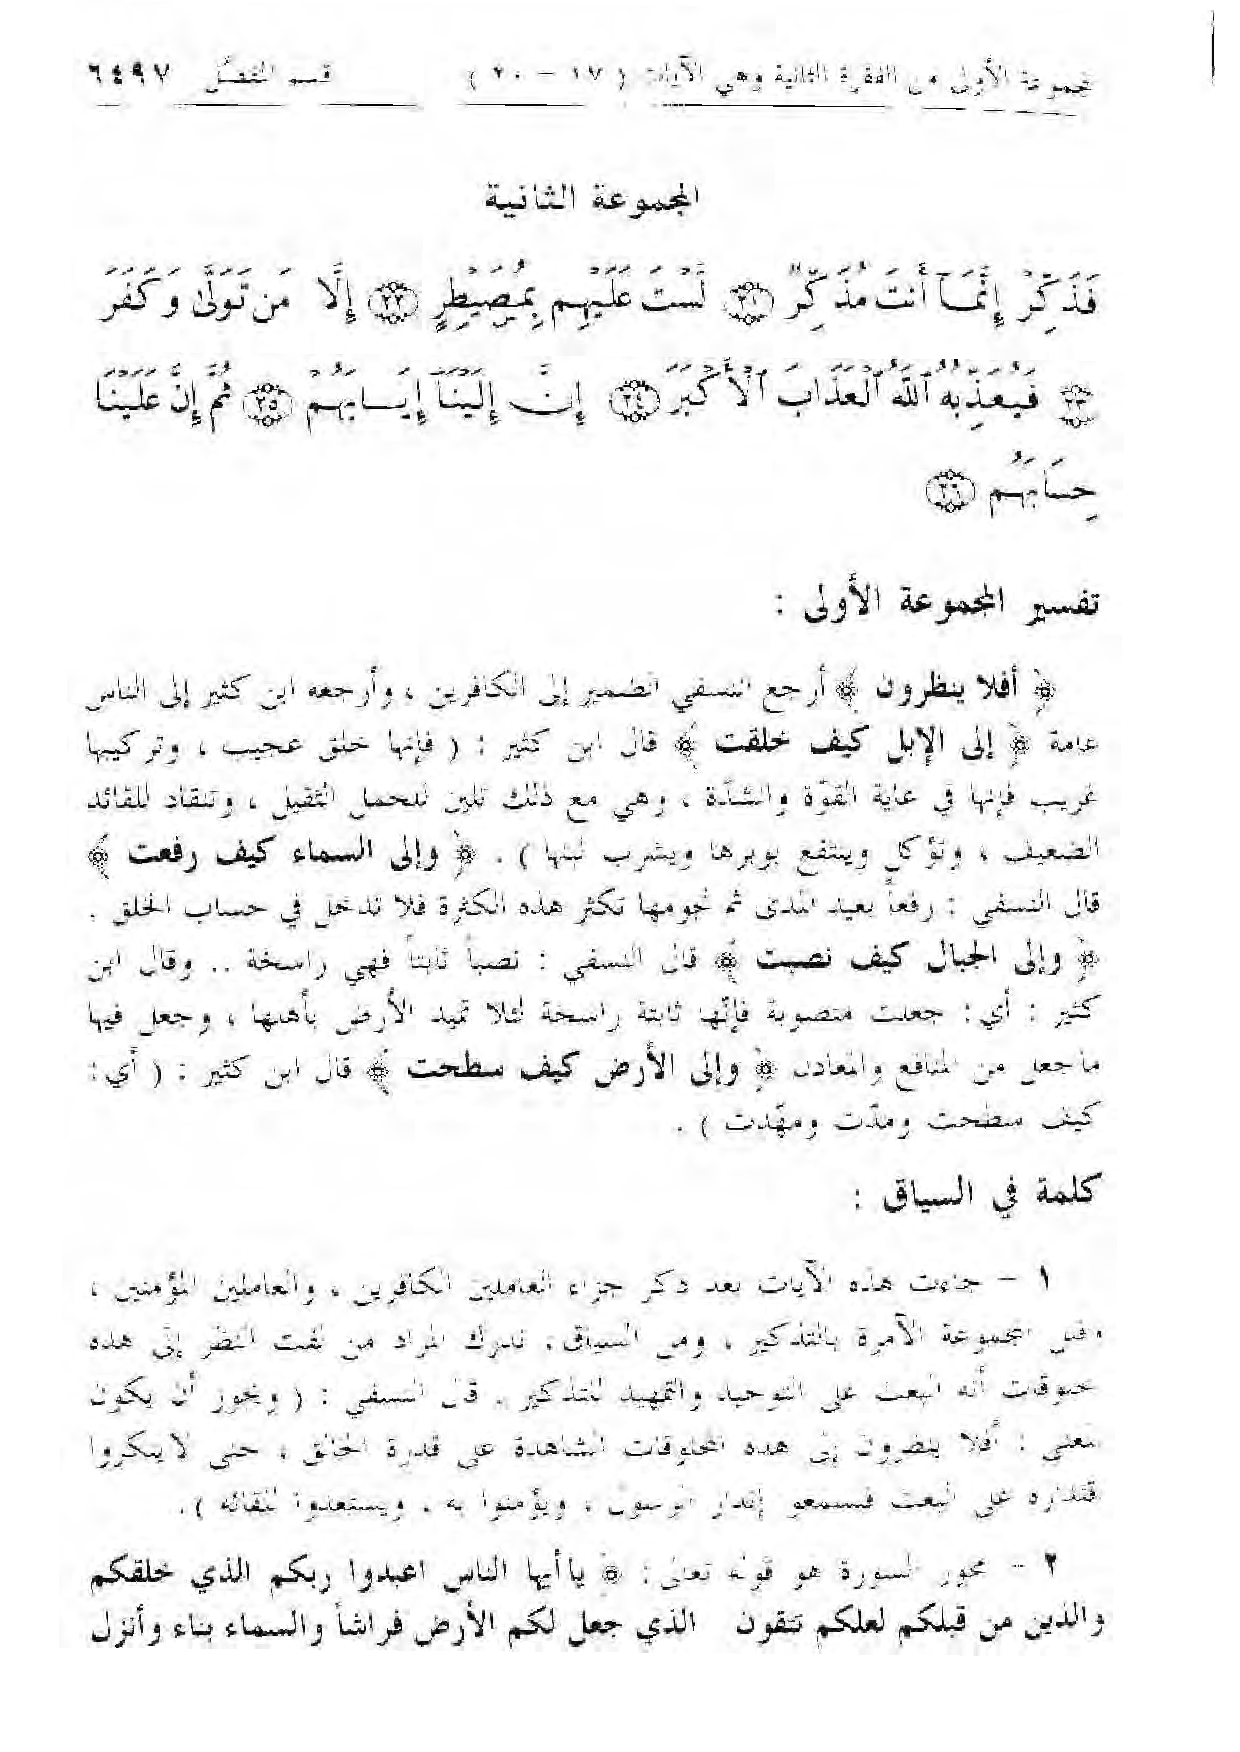 مجموعة الأولى من الفقرة الثانية وهي الآيات ( ١٧ – ٢٠ ) قسم المفصل ٦٤٩٧
المجموعة الثانية
فَذَكِّرْ إِنَّمَآ أَنتَ مُذَكِّرٌ ٢١ لَّسْتَ عَلَيْهِم بِمُصَيْطِرٍ ٢٢ إِلَّا مَن تَوَلَّىٰ وَكَفَرَ
٢٣ فَيُعَذِّبُهُ ٱللَّهُ ٱلْعَذَابَ ٱلْأَكْبَرَ ٢٤ إِنَّ إِلَيْنَآ إِيَابَهُمْ ٢٥ ثُمَّ إِنَّ عَلَيْنَا
حِسَابَهُم ٢٦
تفسير المجموعة الأولى :
﴿ أفلا ينظرون ﴾ أرجع النسفي الضمير إلى الكافرين ، وأرجعه ابن كثير إلى الناس
عامة ﴿ إلى الإبل كيف خلقت ﴾ قال ابن كثير : ( فإنها خلق عجيب ، وتركيبها
غريب فإنها في غاية القوّة والشدّة ، وهي مع ذلك تلين للحمل الثقيل ، وتنقاد للقائد
الضعيف ، وتؤكل وينتفع بوبرها ويشرب لبنها ) . ﴿ وإلى السماء كيف رفعت ﴾
قال النسفي : رفعاً بعيد المدى ثم نجومها تكثر هذه الكثرة فلا تدخل في حساب الخلق .
﴿ وإلى الجبال كيف نصبت ﴾ قال النسفي : نصباً ثابتاً فهي راسخة .. وقال ابن
كثير : أي : جعلت منصوبة فإنّها ثابتة راسخة لئلا تميد الأرض بأهلها ، وجعل فيها
ماجعل من المنافع والمعادن ﴿ وإلى الأرض كيف سطحت ﴾ قال ابن كثير : ( أي :
كيف سطحت ومدّت ومهّدت ) .
كلمة في السياق :
١ – جاءت هذه الآيات بعد ذكر جزاء العاملين الكافرين ، والعاملين المؤمنين ،
وقبل المجموعة الآمرة بالتذكير ، ومن السياق ، ندرك المراد من لفت النظر إلى هذه
خلوقات أنه البعث على التوحيد والتمهيد للتذكير . قال النسفي : ( ويجوز أن يكون
المعنى : أفلا ينظرون إلى هذه المخلوقات الشاهدة على قدرة الخالق ، حتى لاينكروا
قتداره على البعث فيسمعوا إنذار الرسول ، ويؤمنوا به ، ويستعدوا للقائه ) .
٢ – محور السورة هو قوله تعالى : ﴿ ياأيها الناس اعبدوا ربكم الذي خلقكم
والذين من قبلكم لعلكم تتقون الذي جعل لكم الأرض فراشاً والسماء بناء وأنزل